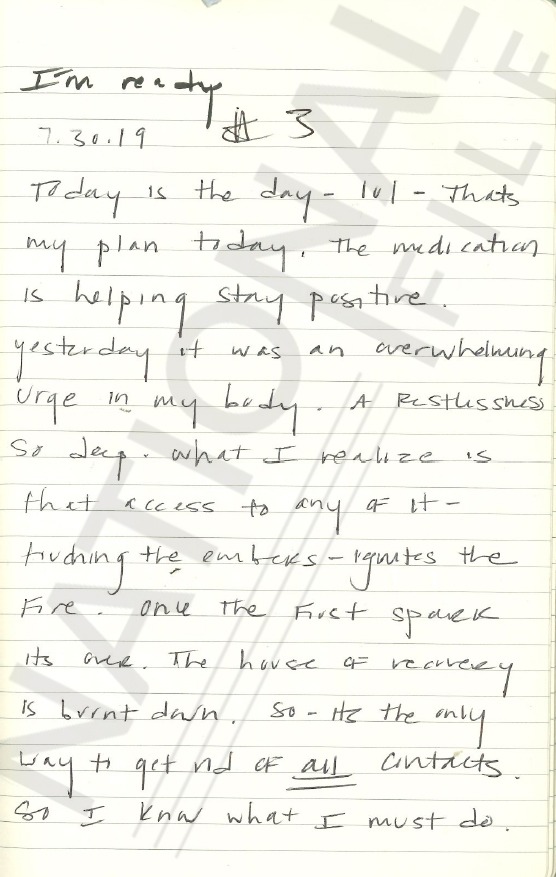 I'm ready
7.30.19 # 3
Today is the day - lol - Thats
my plan today. The medication
is helping stay positive.
yesterday it was an overwhelming
urge in my body. A Restlessness
So deep. what I realize is
that access to any of it -
touching the embers - ignites the
Fire. once the First spark
its over. The house of recovery
is burnt down. So - its the only
way to get rid of all contacts.
So I know what I must do.
NATIONAL
FILE